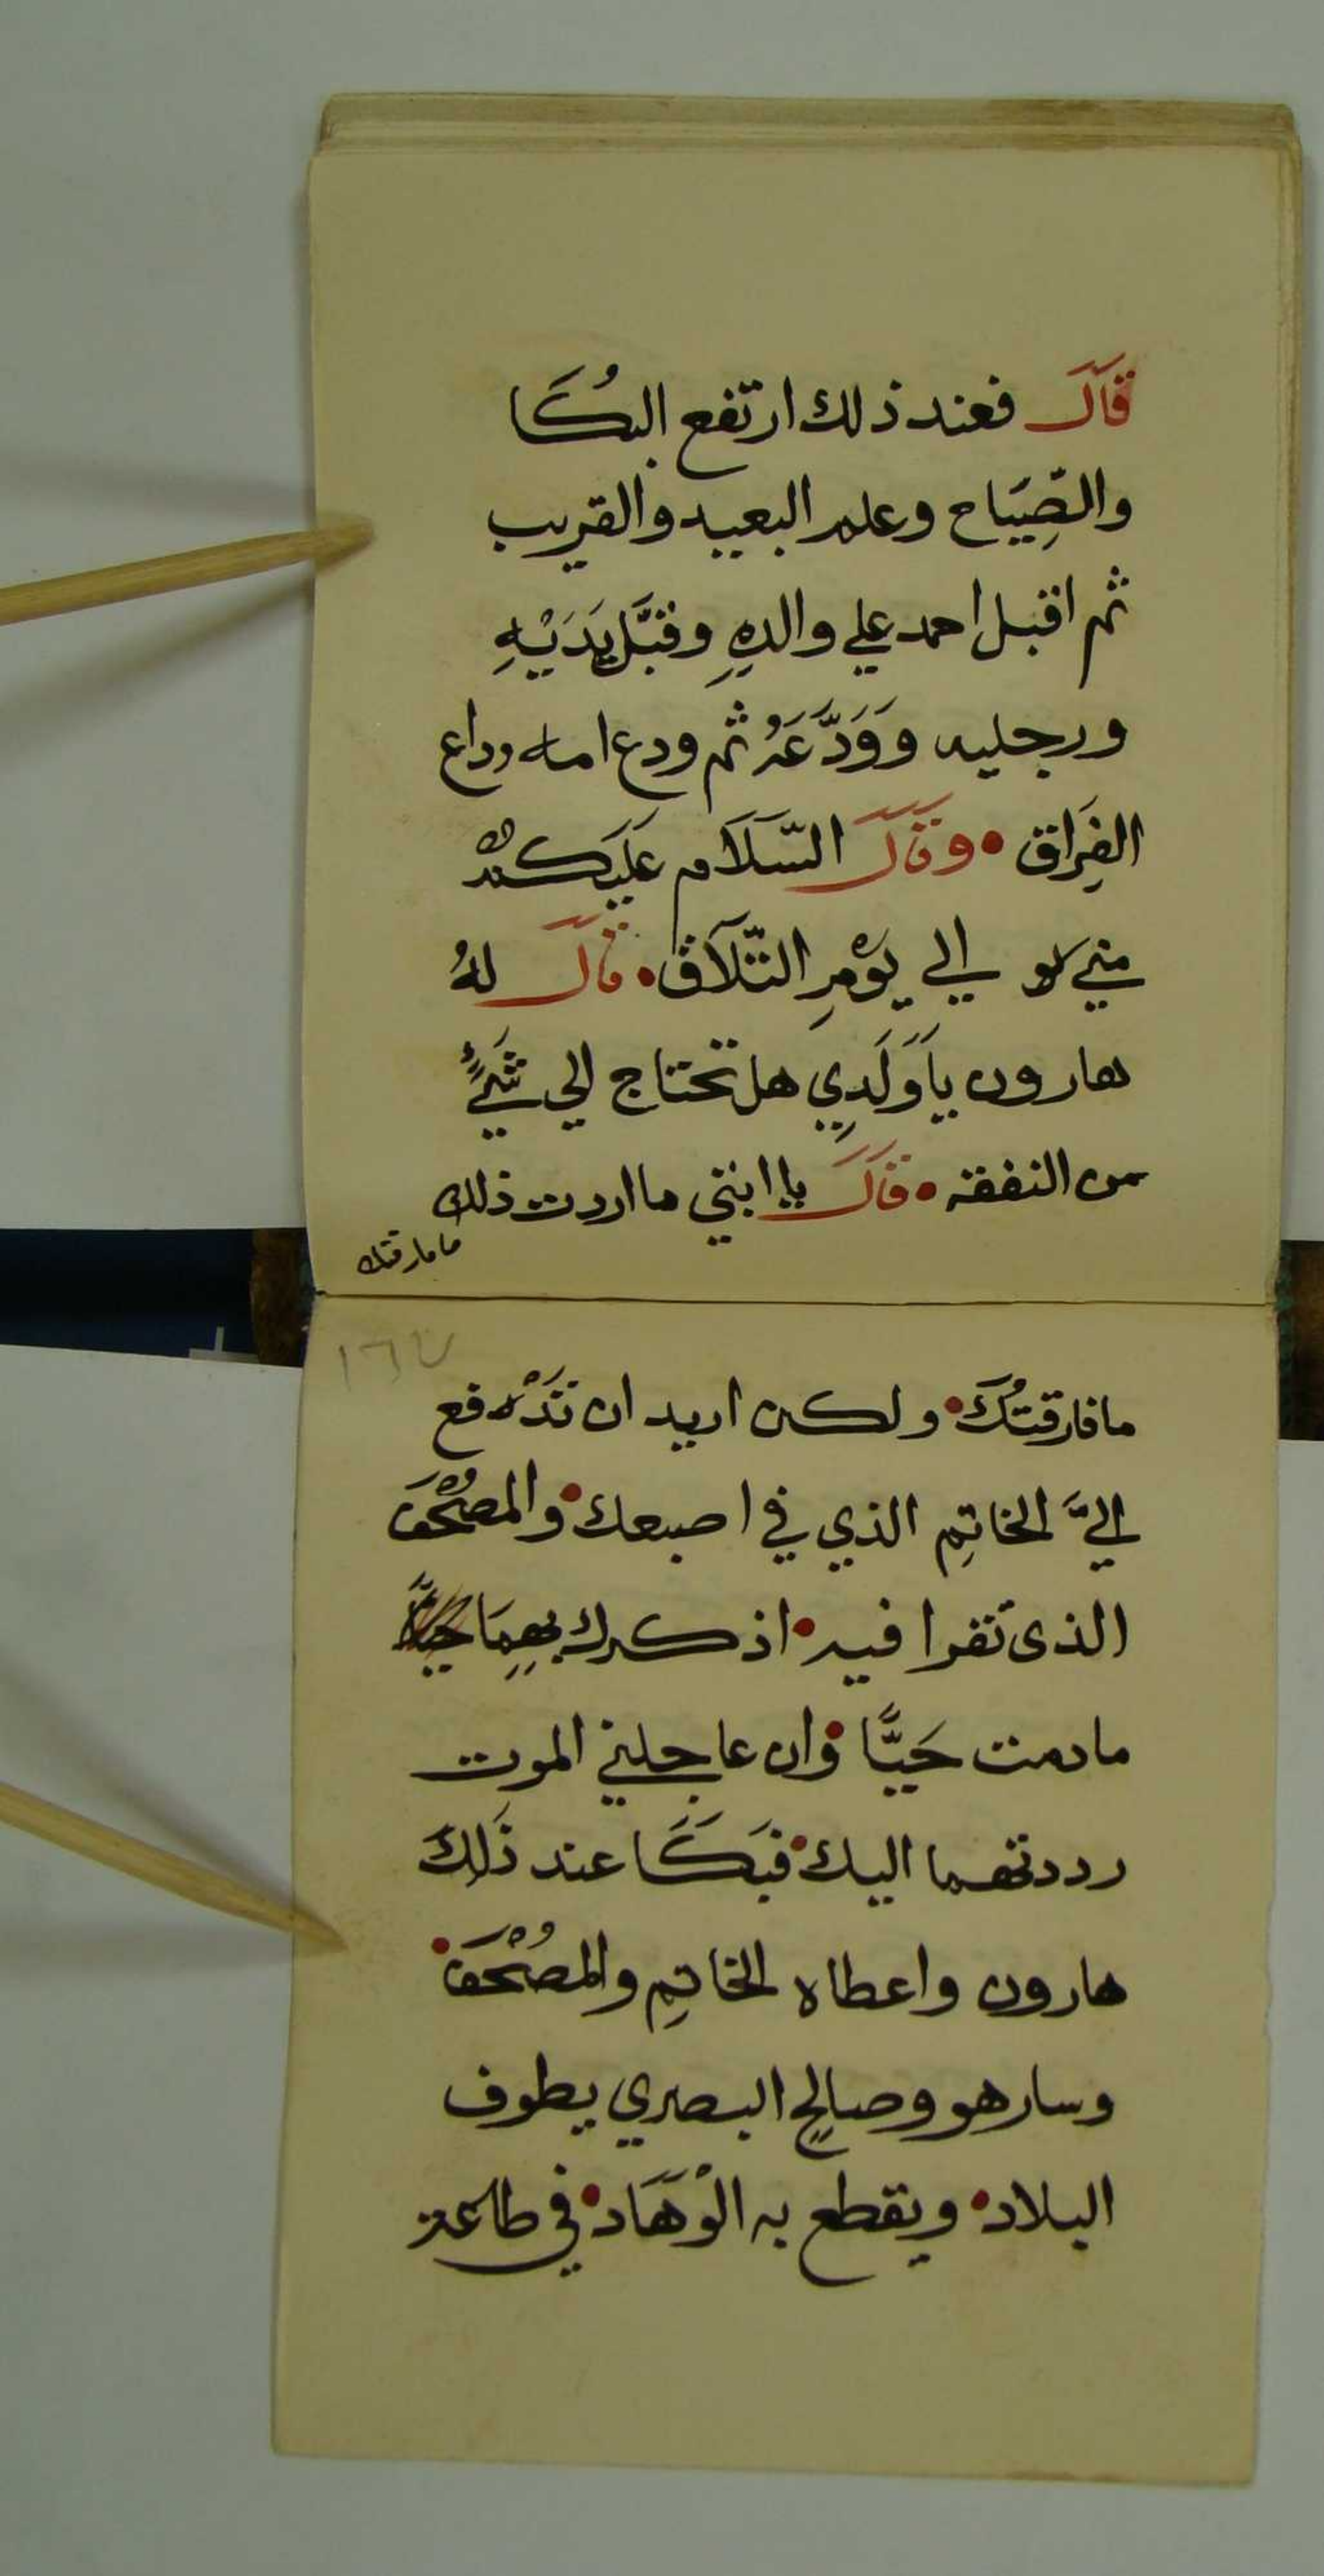 قَالَ فعند ذلك ارتفع البُكَا
والصِّيَاح وعلم البعيد والقريب
ثم اقبل احمد علي والدهِ وقبَّل يَدَيْهِ
ورجليه وَوَدَّعَهُ ثم ودع امه وداع
الفِرَاق • وقَالَ السَّلَام عَلَيكم
مني الي يَوْمِ التَّلَاق • قالَ لهُ
هارون يَاوَلَدِي هل تحتاج الي شَيٍْ
من النفقه • قالَ يا ابتي ما اردت ذلك
ما فارقتك
١٦٧
ما فارقتُكَ • ولكن اريد ان تَدْفع
اليَّ الخاتِم الذي في اصبعك • والمُصْحَف
الذى تقرا فيه • اذكرك بهِمَا
مادمت حَيًّا • وان عاجلني الموت
رددتهما اليك • فبَكَا عند ذَلِكَ
هارون واعطاه الخاتِم والمُصْحَف •
وسار هو وصالحٍ البصري يطوف
البلاد • ويقطع به الْوَهَاد • في طاعة